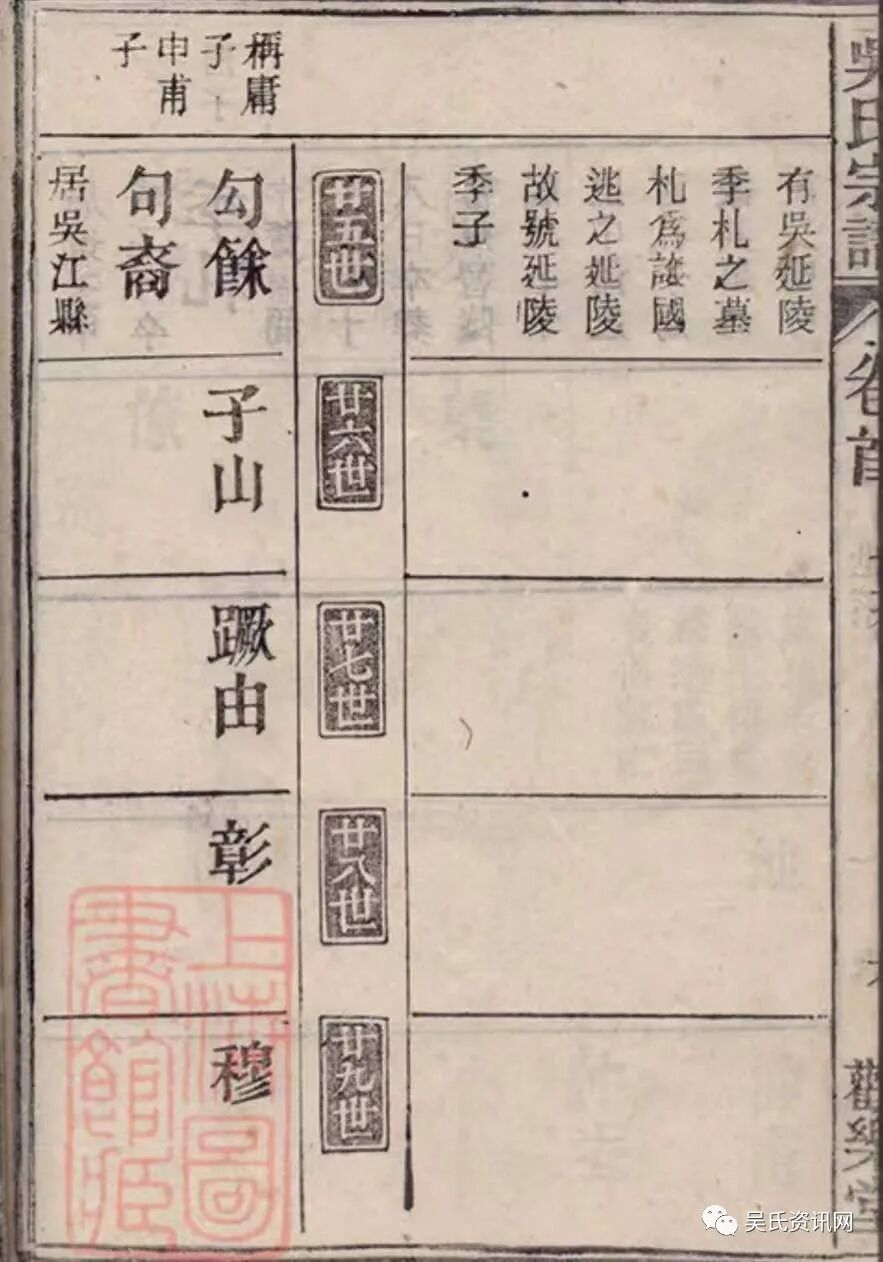 吳氏宗譜
卷首
觀樂堂
有吳延陵
季札之墓
札爲讓國
逃之延陵
故號延陵
季子
廿五世
廿六世
廿七世
廿八世
廿九世
庸
子
申甫
子
勾餘
句裔
居吳江縣
子山
蹶由
彰
穆
上海圖
書館藏
吴氏资讯网